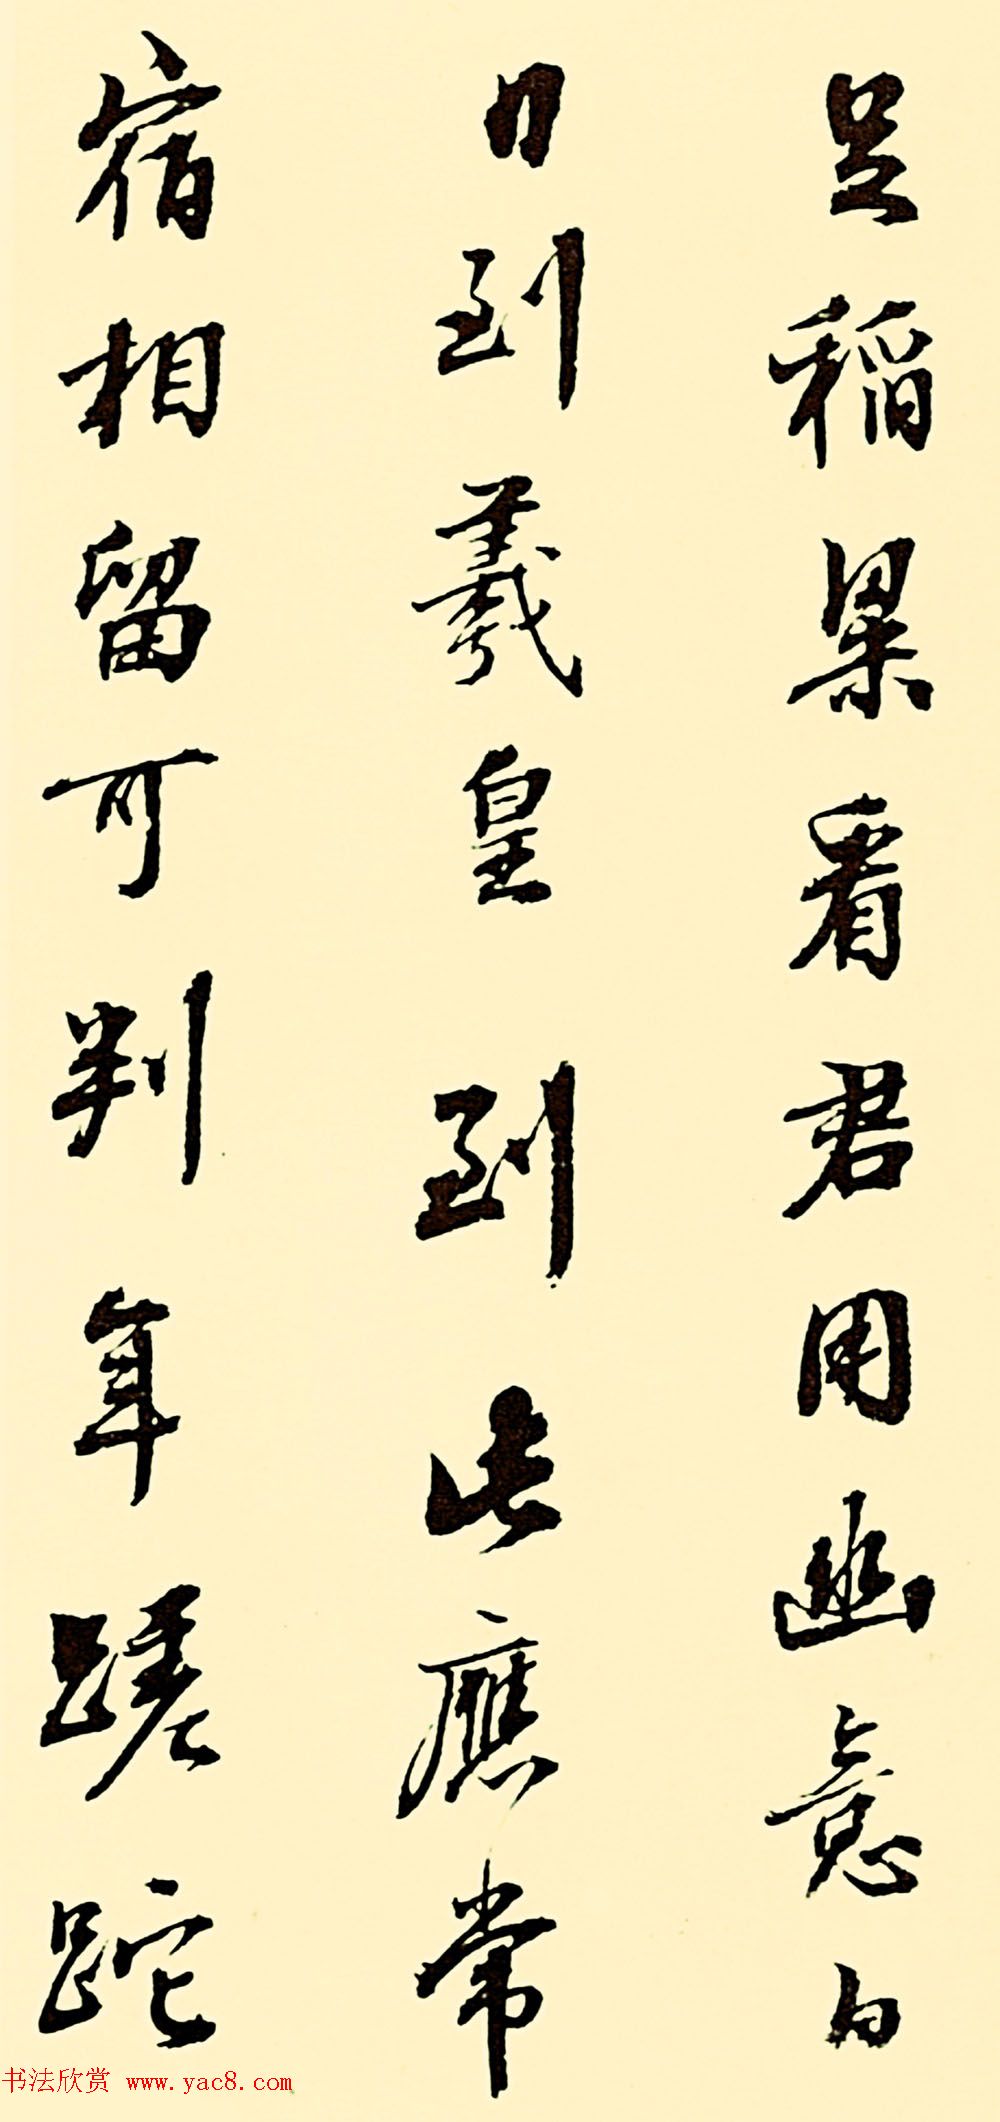 足稻粱看君用幽意白
日到羲皇到此應常
宿相留可判年蹉跎
书法欣赏 www.yac8.com